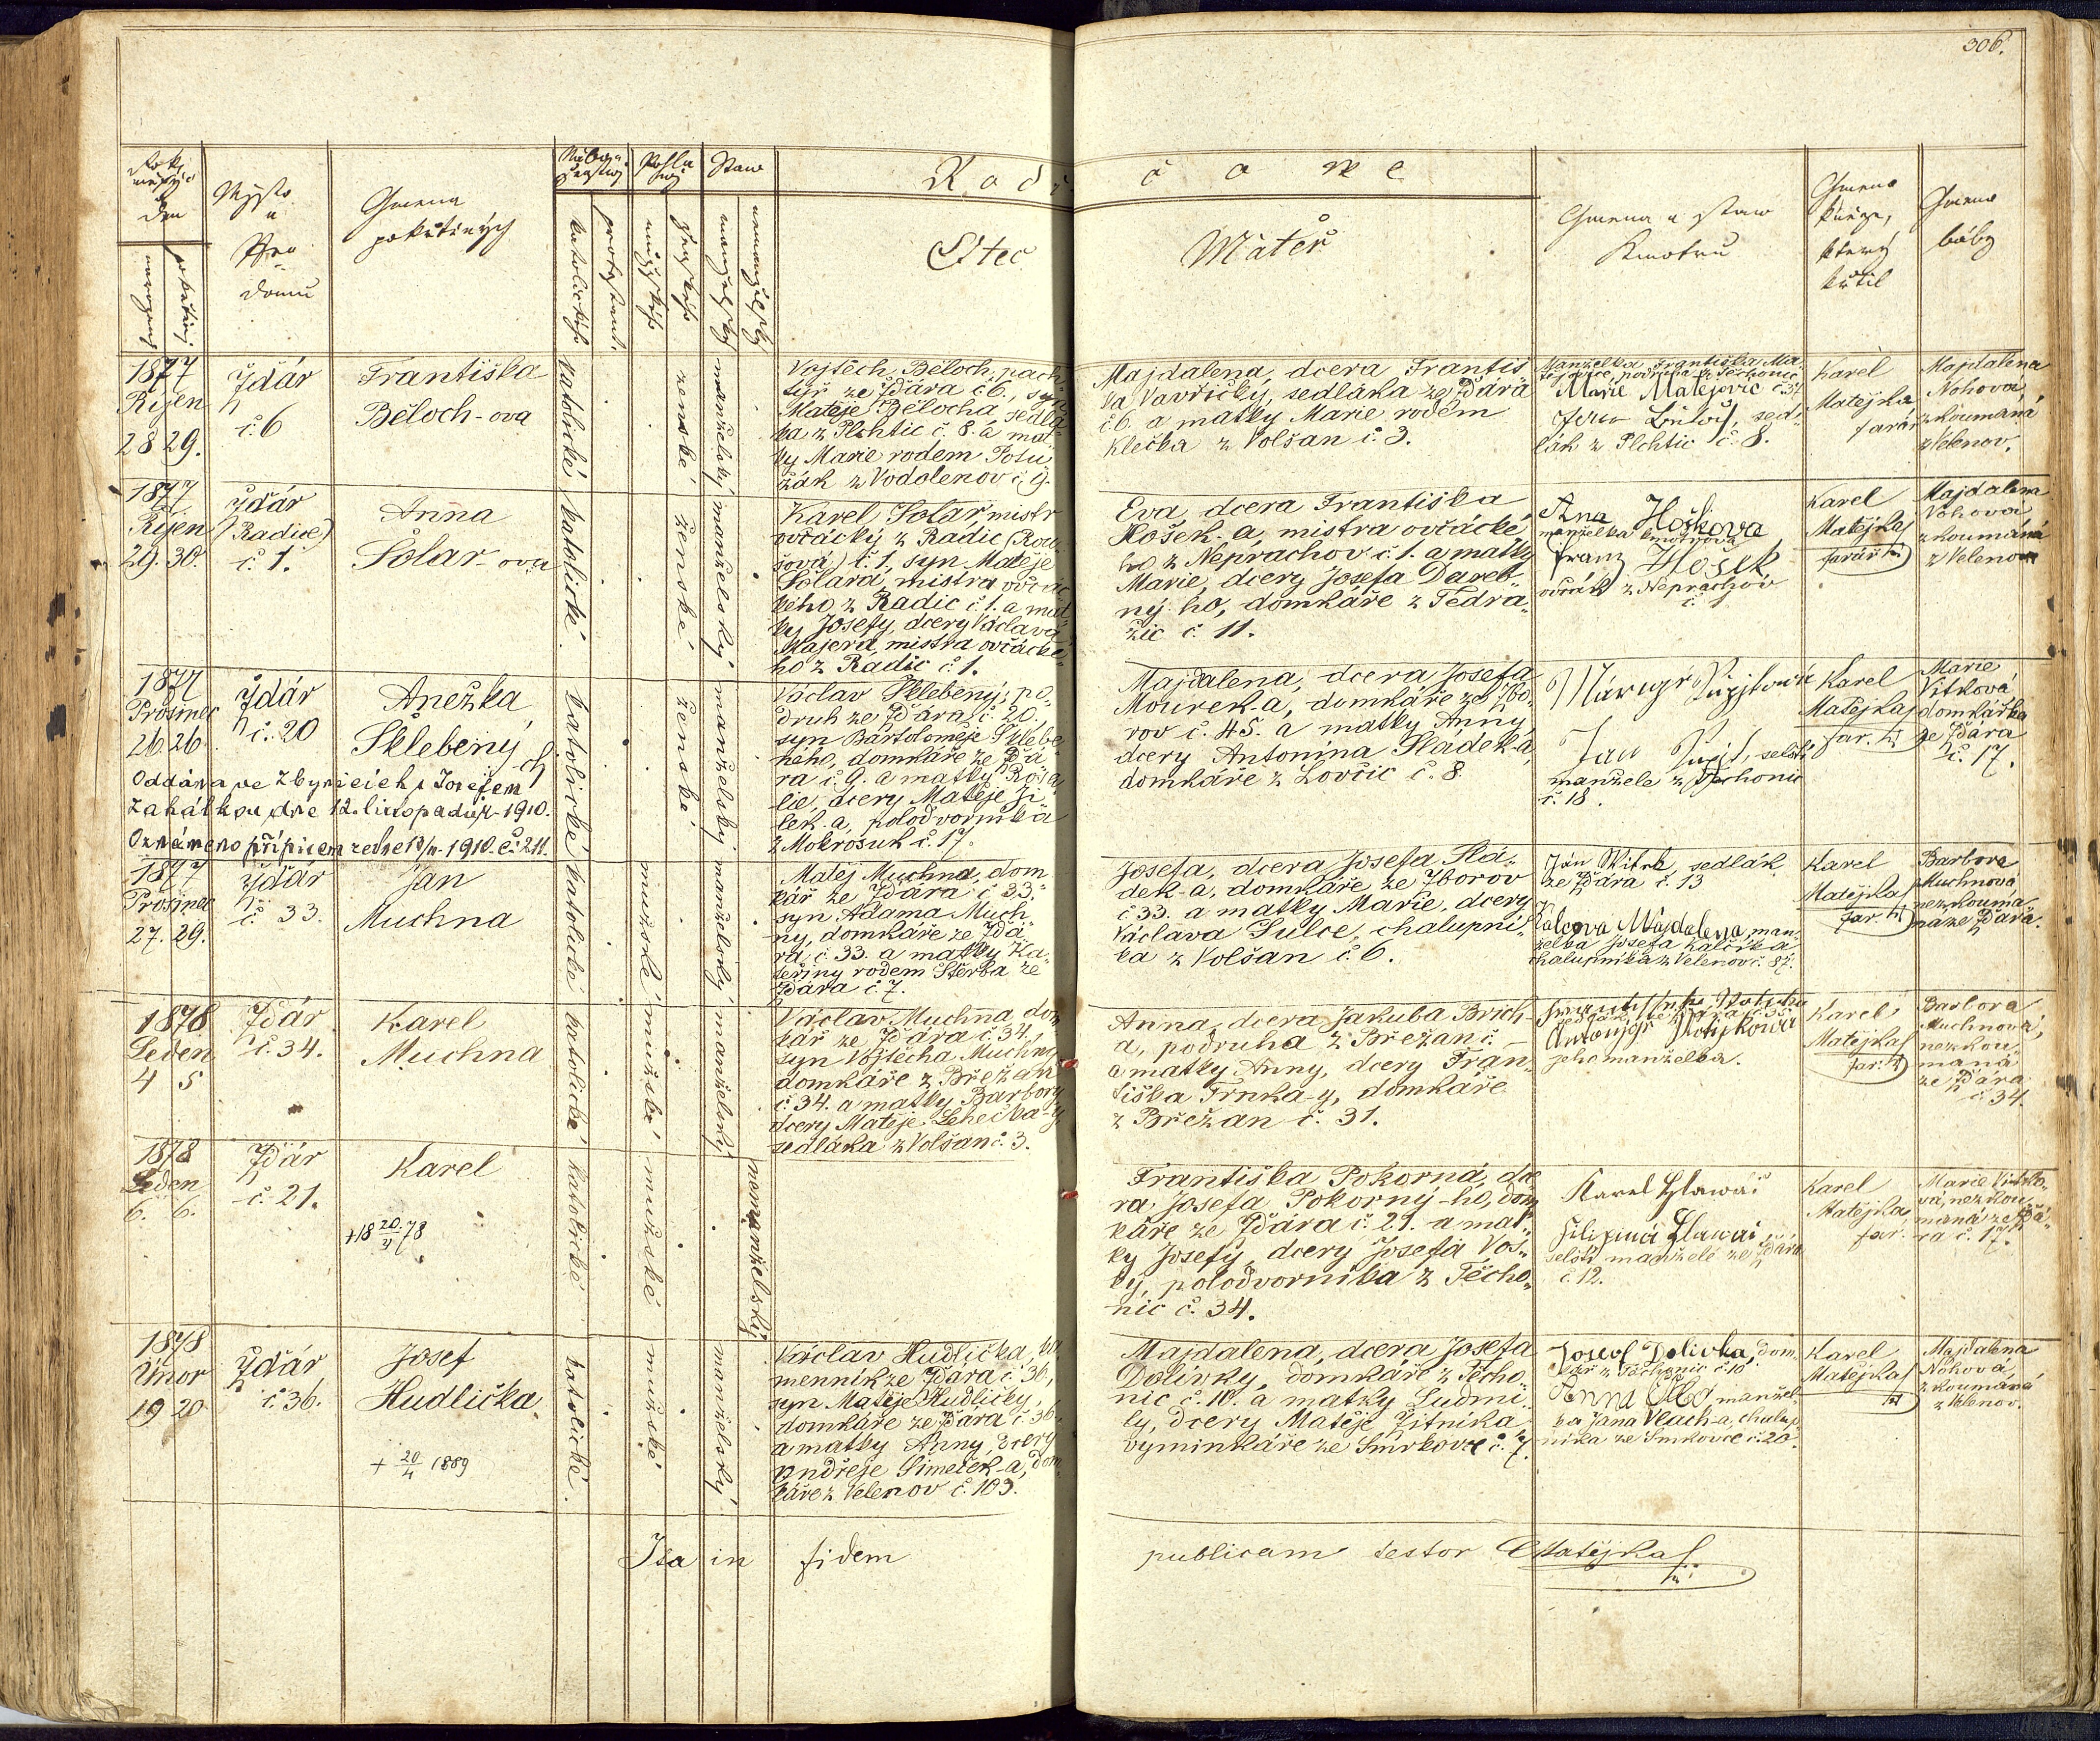 306.
Rok, měsýc a den
narozený
pokřtěný
Mýsto a Čjslo domu
Gmena pokřtěných
Nábožen¬stwj
katolické
protestant.
Pohla¬wj
mužské
ženské
Staw
manželský
nemanželský
Rodičowe
Otec
Mateř
Gmena a staw Kmotrů
Gmeno kněze, který křtil
Gmeno báby
1877
Říjen
28 29.
Ždár
č. 6
Františka
Běloch-ova
katolické
ženské
manželský
Vojtěch Běloch, pach¬
týř ze Ždára č 6., syn
Matěje Bělocha sedlá¬
ka z Plchtic č. 8. a mat¬
ky Marie rodem Polu
žák z Vodolenov č 9.
Majdalena, dcera Františ
ka Vavřičky, sedláka ze Ždára
č 6. a matky Marie rodem
Klečka z Volšan č. 3.
Manželka Františka Ma¬
tějovice, podruha z Těchonic
Marie Matějovic č 34
sed¬
lák z Plchtic č. 8.
Karel
Matějka
farář
Majdalena
Nohová
zkoumaná
z Velenov.
1877
Říjen
29. 30.
Ždár
(Radice)
č 1.
Anna
Šolar-ova
katolické
ženské
manželský
Karel Šolar mistr
ovčácký z Radic (Rou¬
šová) č. 1, syn Matěje
Šolara, mistra ovčác¬
kého z Radic č 1. a mat¬
ky Josefy, dcery Václava
Majera, mistra ovčácké¬
ho z Radic č 1.
Eva dcera Františka
Hošek-a, mistra ovčácké¬
ho z Neprachov č 1. a matky
Marie, dcery Josefa Dareb¬
ný-ho, domkáře z Tedra¬
žic č 11.
Ana Hoškova
manželka kmotrova
Franz Hošek
ovčák z Neprachov
č.
Karel
Matějka
farář
Majdalena
Nohová
zkoumaná
z Velenov
1877
Prosinec
26 26
Ždár
č. 20
Anežka
Sklebený-ch
Oddána ve Zbynicích s Josefem
Zahálkou dne 12. listopadu 1910.
Oznámeno přípisem ze dne 13/11. 1910. č. 211.
katolické
ženské
manželský
Václav Sklebený, po¬
druh ze Ždára č. 20.,
syn Bartoloměje Sklebe
ného, domkáře ze Ždá
ra č 9. a matky Rosa
lie, dcery Matěje Ji
lek-a, polodvorníka
z Mokrosuk č 17.
Majdalena, dcera Josefa
Mourek-a, domkáře ze Zbo¬
rov č. 45. a matky Anny
dcery Antonína Sladek-a,
domkáře z Lovčic č. 8.
Jan
selští
manželé z Těchonic
č. 18.
Karel
Matějka
far.
Marie
Vítková
domkářka
ze Ždára
č. 17.
1877
Prosinec
27. 29.
Ždár
č 33.
Jan
Muchna
katolické
mužské
manželský
Matěj Muchna, dom
kář ze Ždára č 33.
syn Adama Much
ny, domkáře ze Ždá
ra č 33. a matky Ka
teřiny rodem Štěrba ze
Ždára č 7.
Josefa, dcera Josefa Slá¬
dek-a, domkáře ze Zborov
č 33. a matky Marie, dcery
Václava Šulce, chalupní¬
ka z Volšan č 6.
Ján sedlák
ze Ždára č 13
Majdalena, man
želka Josefa Kalčík-a
chalupníka z Velenov č. 87.
Karel
Matějka
far.
Barbora
Muchnová
nezkouma
ná ze Ždára.
1878
Leden
4 5
Ždár
č. 34.
Karel
Muchna
katolické
mužské
manželský
Václav Muchna dom
kář ze Ždára č 34,
syn Vojtěcha Muchny
domkáře z Břežan
č 34. a matky Barbory
dcery Matěje Lehečka-y
sedláka z Volšan č. 3.
Anna, dcera Jakuba Brich-
a, podruha z Břežan č. —
a matky Anny, dcery Fran¬
tiška Trnka-y, domkáře
z Břežan č. 31.
jeho manželka.
Karel
Matějka
far.
Barbora
Muchnová,
nezkou
maná
ze Ždára
č 34.
1878
Leden
6. 6.
Ždár
č. 21.
Karel
+ 18 20/4 78
katolické
mužské
nemanželský
Františka Pokorná, dce
ra Josefa Pokorný-ho, dom
káře ze Ždára č. 21. a mat¬
ky Josefy, dcery Josefa Vos¬
ky, polodvorníka z Těcho¬
nic č. 34.
Karel Hlawač
Filipina Hlawač
selští manželé ze Ždára
č. 12.
Karel
Matějka
far.
Marie Vítko¬
vá, nezkou
maná ze Ždá¬
ra č. 17.
1878
Únor
19 20
Ždár
č 36.
Josef
Hudlička
+ 20/4 1889
katolické.
mužské
manželský
Václav Hudlička, ka
menník ze Ždára č. 36,
syn Matěje Hudličky,
domkáře ze Ždára č 36.
a matky Anny, dcery
Ondřeje Šimeček-a, dom
káře z Velenov č. 103.
Majdalena, dcera Josefa
Dolívky, domkáře z Těcho
nic č. 10. a matky Ludmi
ly, dcery Matěje Žitníka
vyminkáře ze Smrkovce č. 7.
Josef Dolivka, dom¬
kář z Těchonic č 10
Anna manžel¬
ka Jana Vlach-a, chalup
níka ze Smrkovce č. 20.
Karel
Matějka
Majdalena
Nohová,
zkoumaná
z Velenov.
Ita in fidem publicam testor Matějka